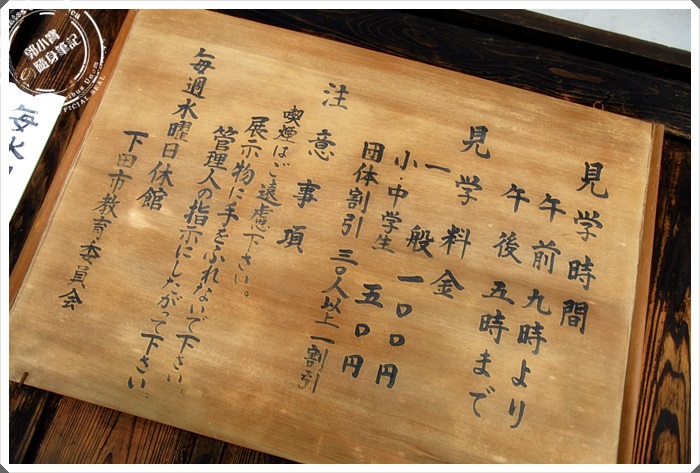 見学時間
午前九時より
午後五時まで
見学料金
一般 一〇〇円
小・中学生 五〇円
団体割引 三〇人以上一割引
注意事項
喫煙はご遠慮下さい。
展示物に手をふれないで下さい。
管理人の指示にしたがって下さい。
毎週水曜日休館
下田市教育委員会
毎水
郭小寶
隨身筆記